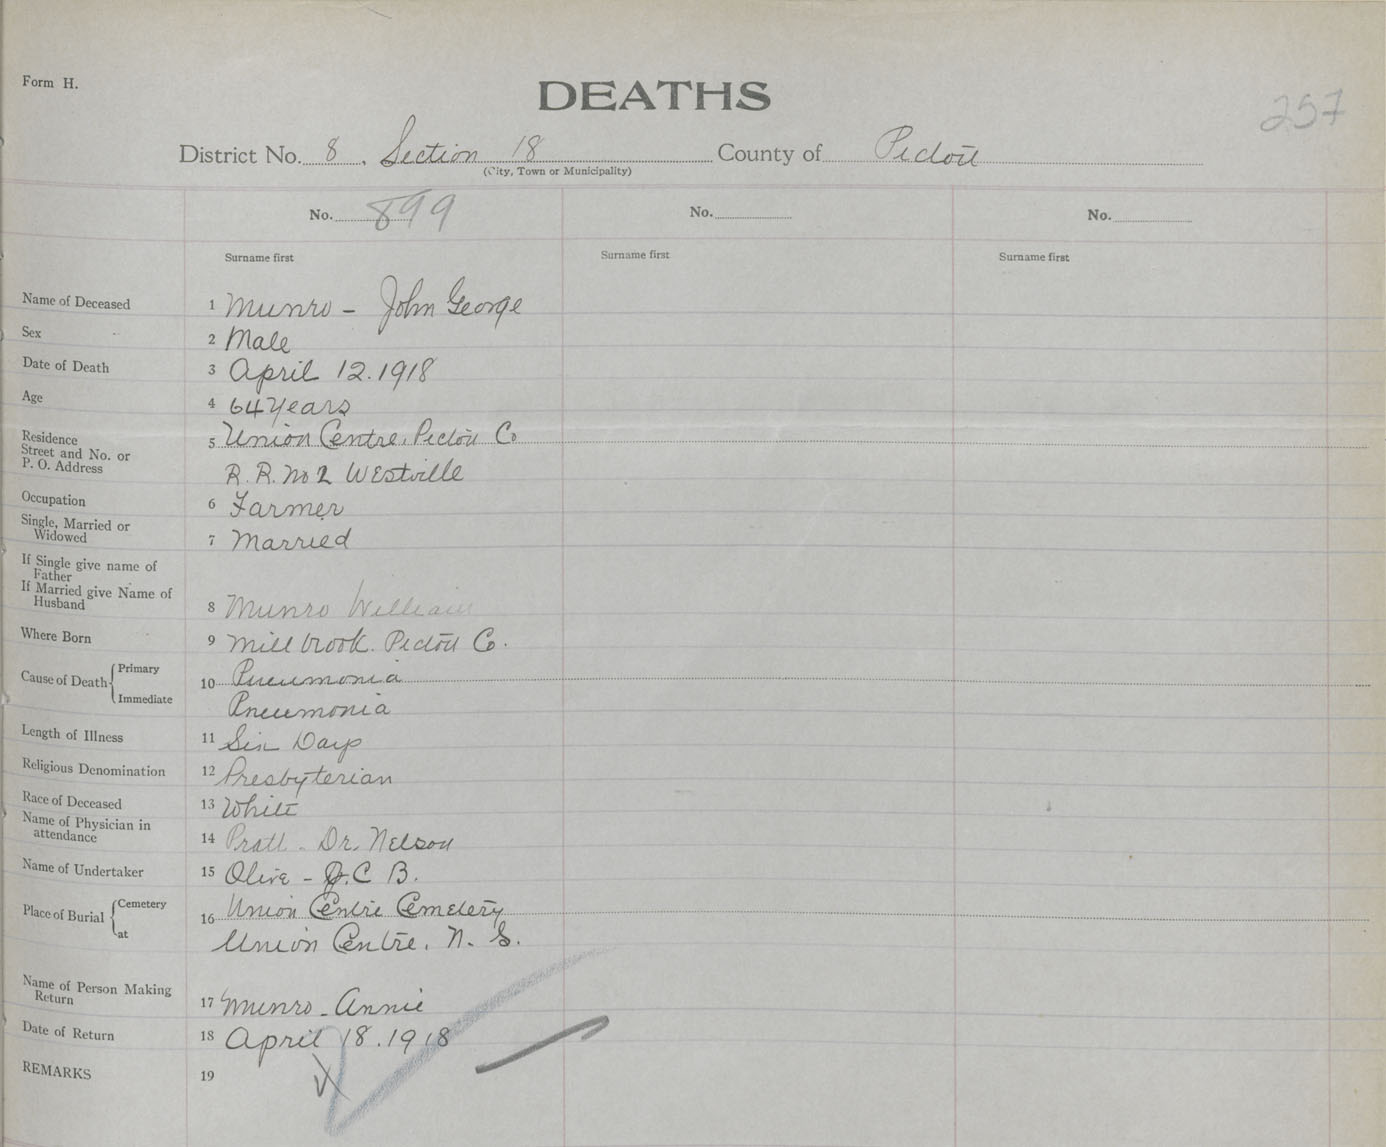 Form H.
DEATHS
257
District No. 8. Section 18 County of Pictou
(City, Town or Municipality)
No. 899 No. No.
Surname first Surname first Surname first
Name of Deceased 1 Munro - John George
Sex 2 Male
Date of Death 3 April 12. 1918
Age 4 64 Years
Residence 5 Union Centre, Pictou Co
Street and No. or
P. O. Address R. R. No 2 Westville
Occupation 6 Farmer
Single, Married or
Widowed 7 Married
If Single give name of
Father
If Married give Name of
Husband 8 Munro William
Where Born 9 Millbrook. Pictou Co.
Cause of Death Primary 10 Pneumonia
Immediate Pneumonia
Length of Illness 11 Six Days
Religious Denomination 12 Presbyterian
Race of Deceased 13 White
Name of Physician in
attendance 14 Pratt - Dr. Nelson
Name of Undertaker 15 Olive - J. C B.
Place of Burial Cemetery 16 Union Centre Cemetery
at Union Centre, N. S.
Name of Person Making
Return 17 Munro - Annie
Date of Return 18 April 18. 1918
REMARKS 19